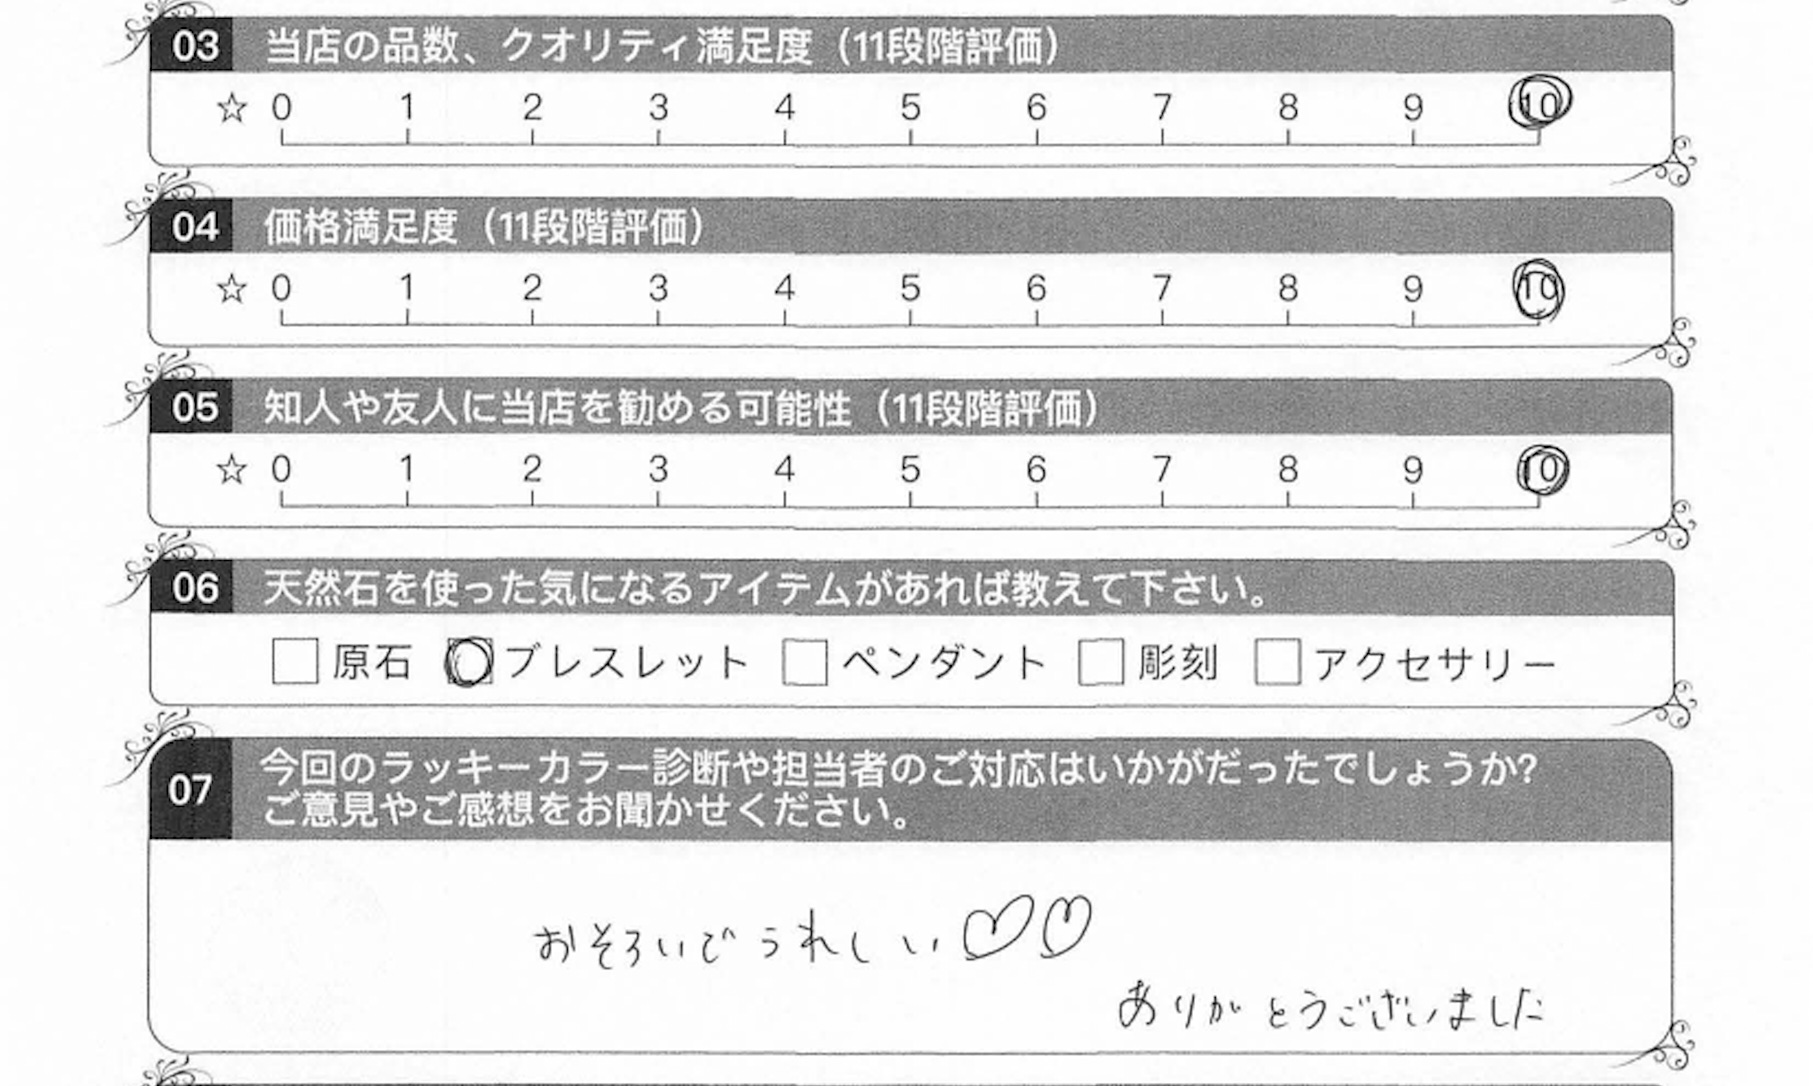 03 当店の品数、クオリティ満足度（11段階評価）
☆ 0 1 2 3 4 5 6 7 8 9 10
04 価格満足度（11段階評価）
☆ 0 1 2 3 4 5 6 7 8 9 10
05 知人や友人に当店を勧める可能性（11段階評価）
☆ 0 1 2 3 4 5 6 7 8 9 10
06 天然石を使った気になるアイテムがあれば教えて下さい。
原石 ブレスレット ペンダント 彫刻 アクセサリー
07 今回のラッキーカラー診断や担当者のご対応はいかがだったでしょうか?
ご意見やご感想をお聞かせください。
おそろいでうれしい♡♡
ありがとうございました